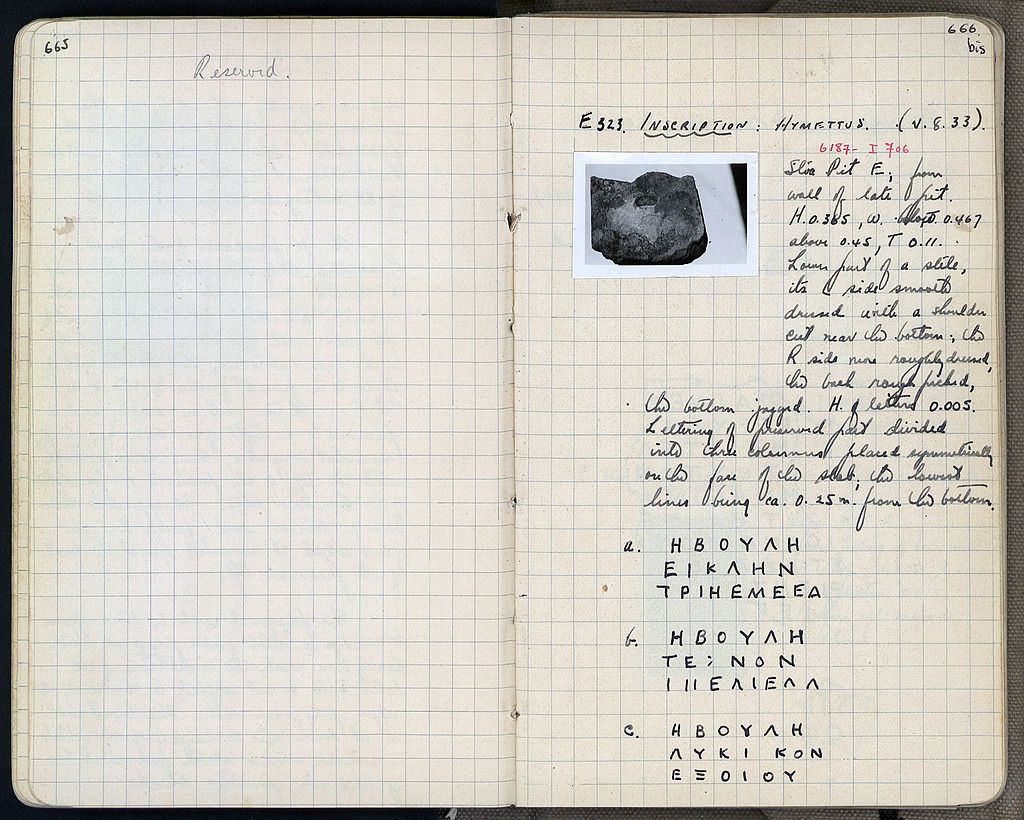 665
Reserved.
666
bis
E 323. INSCRIPTION: HYMETTUS. (V. 8. 33).
6187- I 706
Stoa Pit E; from
wall of late pit.
H. 0.365, W. 0.467
above 0.45, T 0.11.
Lower part of a stele,
its L side smooth
dressed with a shoulder
cut near the bottom; the
R side more roughly dressed,
the back rough picked,
the bottom jagged. H. of letters 0.005.
Lettering of preserved part divided
into three columns placed symmetrically
on the face of the slab; the lowest
lines being ca. 0.25 m. from the bottom.
a. Η Β Ο Υ Λ Η
Ε Ι Κ Λ Η Ν
Τ Ρ Ι Η Ε Μ Ε Ε Δ
b. Η Β Ο Υ Λ Η
Τ Ε : Ν Ο Ν
Ι Ι Ι Ε Λ Ι Ε Λ Λ
c. Η Β Ο Υ Λ Η
Λ Υ Κ Ι Κ Ο Ν
Ε Ξ Ο Ι Ο Υ